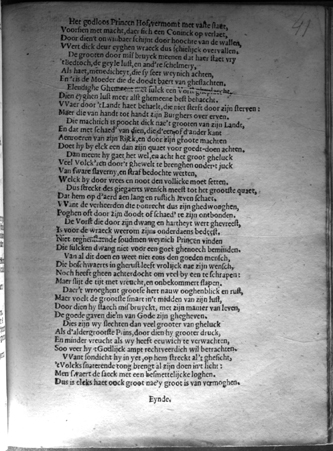 Het godloos Princen Hof, vermomt met valſe ſtaet,
Voorſien met macht, daer ſich een Coninck op verlaet,
Door dien't onwinbaer ſchijnt door hoochte van de wallen,
VVert dick deur eyghen wraeck dus ſchielijck overvallen.
De grooten door miſbruyck meenen dat haer ſtaet vry
Als haet, nijt
Ellendighe Ghemeente met ſulck een
Dien eyghen luſt meer als't ghemeene beſt behaecht.
VVaer door 't Landt haer behaelt, die niet ſterft door zijn ſterven:
Maer die van handt tot handt zijn Burghers over erven.
Die machtich is poocht dick naer 't grooten van zijn Landt,
En dat met ſchaed' van dien, die d'een of d'ander kant
Aenroeren van zijn Rijck, en door zijn groote machten
Doet hy by elck een dan zijn quaet voor goedt-doen achten.
Dan meent hy gaet het wel, en acht het groot gheluck
Veel Volck'ren door 't ghewelt te brenghen onder 't juck
Van ſware ſlaverny, en ſtraf bedochte wetten,
Welck hy door vrees en noot den volcke moet ſetten.
Dus ſtreckt des giegaerts wenſch meeſt tot het grootſte quaet,
Dat hem op d'aerd den lang en ruſtich leven ſchaet.
VVant de verheerden die onruſt dus zijn ghedwonghen,
Poghen oft door zijn doodt of ſchaed' te zijn ontbonden.
De Vorſt die door zijn dwang en hartheyt wert ghevreeſt,
Is voor de wraeck weerom zijns onderdaens bedeeſt.
Niet teghenſtaende ſoudmen weynich Princen vinden
Die ſulcken dwang niet voor een goet ghenoech beminden.
Van al dit doen en weet niet eens den goeden menſch,
Die beſchwaert in gheruſt leeft vrolijck nae zijn wenſch,
Noch heeft gheen achterdocht om veel by een te ſchrapen:
Maer ſlijt de tijt met vreucht, en onbekommert ſlapen.
Daer't wroeghent grootſte heet nauw noghenblick en ruſt,
Maer voelt de grootſte ſmart in't midden van zijn luſt,
Door dien hy ſtaech ons bruyckt, met zijn manier van leven,
De goede gaven die'm van Gode zijn ghegheven.
Dies zijn wy ſlechten dan veel grooter van gheluck
Als d'aldergrootſte Prins, door dien hy grooter druck,
En minder vreucht als wy heeft eeuwich te verwachten,
Soo veer hy 't Godlijck ampt rechtveerdich wil betrachten.
VVant ſondicht hy in yet, op hem ſtreckt al 't gheſicht,
't Volcks ſnaerende tong brengt al zijn doen in't licht:
Men ſwaert de ſaeck met een beſmettelijcke loghen.
Dus is elcks haet oock groot nae'y groot is van vermoghen.
Eynde.
41